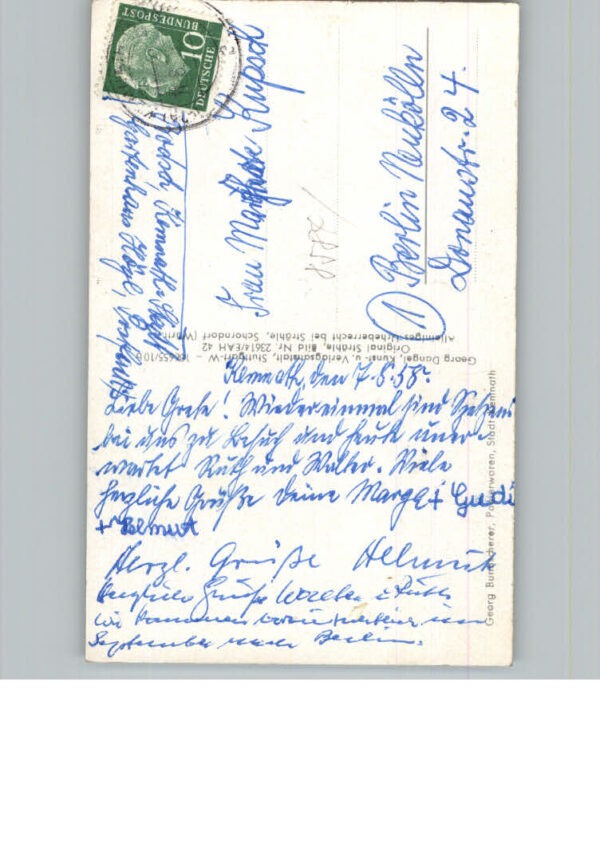 10
DEUTSCHE
BUNDESPOST
Frau Margarete Kupsch
1 Berlin Neukölln
Donaustr. 24.
Kemnath-Stadt
Gartenhaus Högl,
Georg Dangel, Kunst- u. Verlagsanstalt, Stuttgart-W
Original Strähle, Bild Nr. 23614/EAH 42
Alleiniges Urheberrecht bei Strähle, Schorndorf (Württ.)
Kemnath, den 7.8.58.
Liebe Grete! Wiedereinmal sind
bei uns zu Besuch und heute uner-
wartet Ruth und Walter. Viele
herzliche Grüße Deine Marga + Gudi
+ Helmut
Herzl. Grüße Helmut
Herzliche Grüße Walter + Ruth
wir kommen im
September nach Berlin.
Georg Papierwaren, Stadt Kemnath